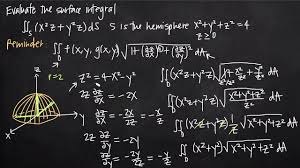 Evaluate the surface integral
∬ₛ (x²z + y²z) dS  S is the hemisphere x² + y² + z² = 4
z ≥ 0
Reminder
∬_D f(x, y, g(x, y)) √(1 + (∂z/∂x)² + (∂z/∂y)²) dA
r=2
z
x
z² = 4 - x² - y²
2z ∂z/∂x = -2x
2z ∂z/∂y = -2y
∂z/∂y = -2y/2z = -y/z
∬_D (x²z + y²z)
dA
∬_D (x²z + y²z) √(x² + y² + z²/z²) dA
∬_D (x²z + y²z) 1/z √(x² + y² + z²) dA
∬_D (x² + y²) √(x² + y² + z²) dA